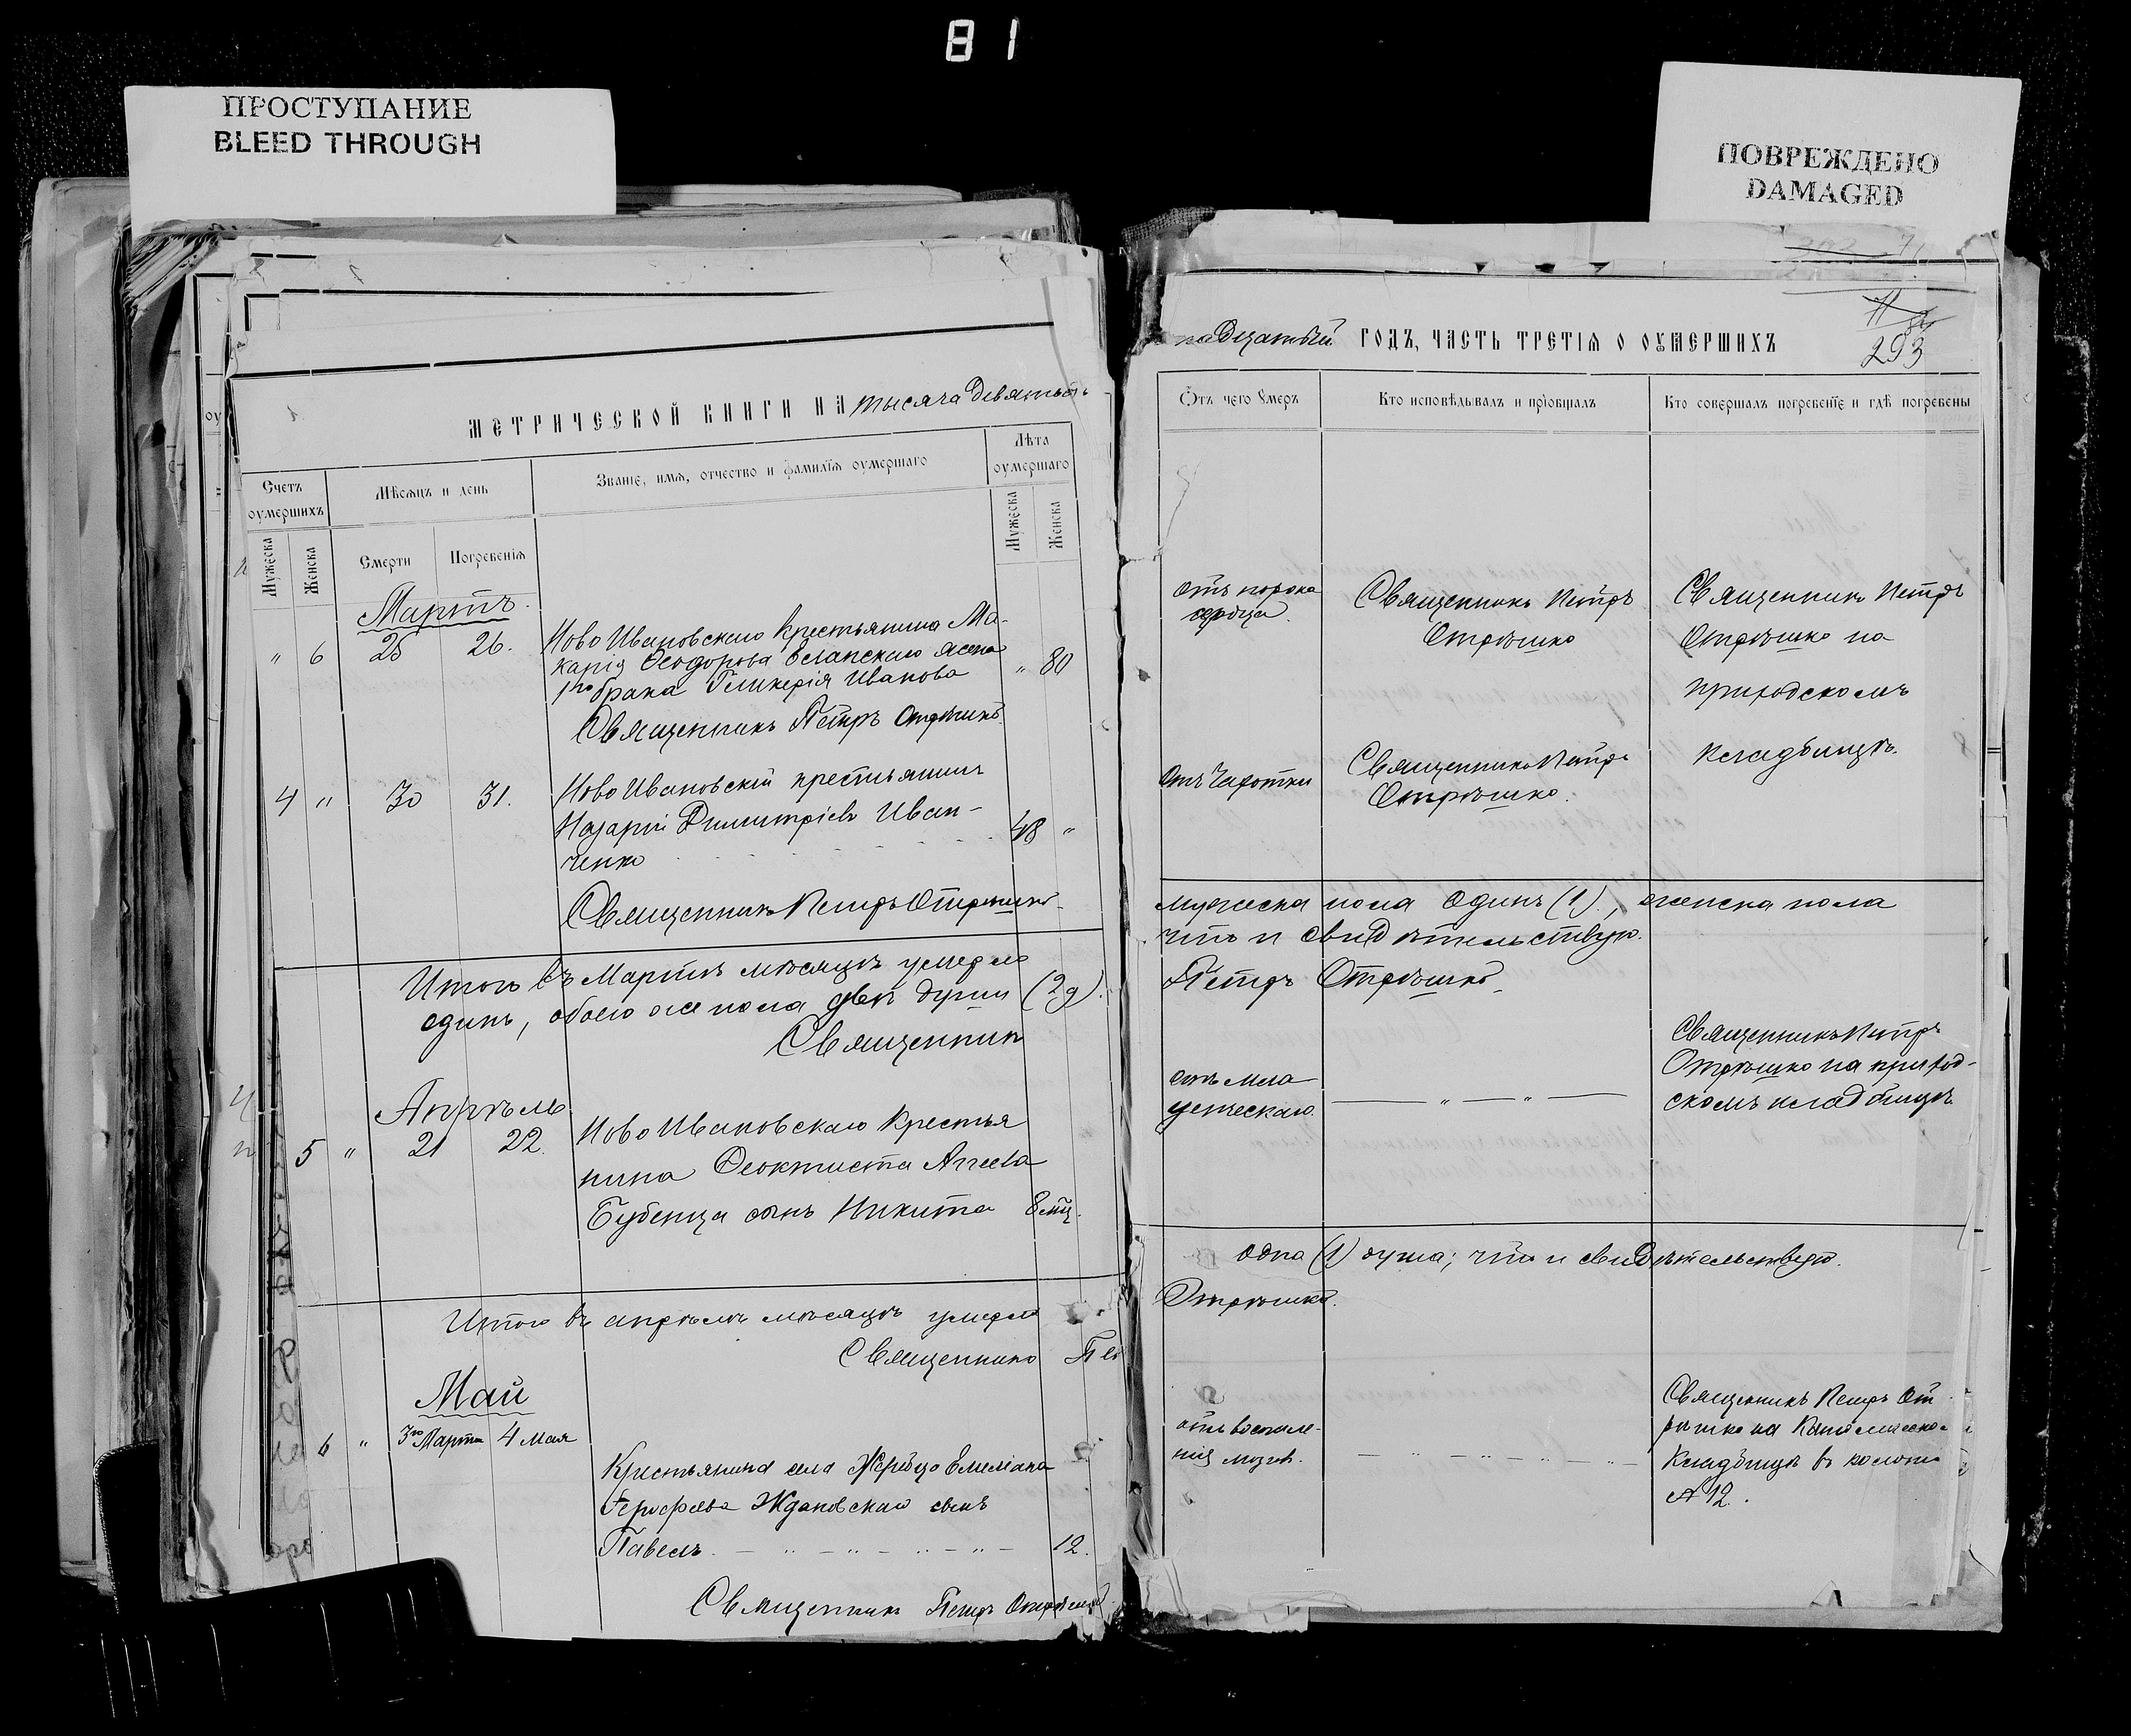 81
ПРОСТУПАНИЕ
BLEED THROUGH
ПОВРЕЖДЕНО
DAMAGED
МЕТРИЧЕСКОЙ КНИГИ НА тысяча девятьсотъ
Счетъ оумершихъ
Мѣсяцъ и день
Званіе, имя, отчество и фамилія оумершаго
Лѣта оумершаго
Мужеска
Женска
Смерти
Погребенія
Мужеска
Женска
Мартъ.
" 6 25 26. Ново Ивановскаго крестьянина Ма-
карія Ѳеодорова жена
1го брака Гликерія Иванова " 80
Священникъ Петръ Отрѣшко
4 " 30 31. Ново Ивановскій крестьянинъ
Назарій Димитріевъ Иван-
ченко 48 "
Священникъ Петръ Отрѣшко
Итого въ Мартѣ мѣсяцѣ умерло
одинъ, обоего же пола двѣ души (2д).
Священник
Апрѣль
5 " 21 22. Ново Ивановскаго крестья
нина Ѳеоктиста Аггеева
Бубенца сынъ Никита 8 мц.
Итого въ апрѣлѣ мѣсяцѣ умерло
Священникъ Пе
Май
6 " 3го Марта 4 Мая
Крестьянина села Жеребца Емеліана
Ждановскаго сынъ
Павелъ 12.
Священникъ Петръ Отрѣшко
надцатый ГОДЪ, ЧАСТЬ ТРЕТІЯ О ОУМЕРШИХЪ
293
Отъ чего умеръ
Кто исповѣдывалъ и пріобщалъ
Кто совершалъ погребеніе и гдѣ погребены
отъ порока
сердца.
Священникъ Петръ
Отрѣшко
Священникъ Петръ
Отрѣшко на
приходскомъ
кладбищѣ.
Отъ чахотки
Священникъ Петръ
Отрѣшко.
мужеска пола одинъ (1), женска пола
что и свидѣтельствую.
Петръ Отрѣшко
отъ мла
денческаго.
Священникъ Петръ
Отрѣшко на приход-
скомъ кладбищѣ.
одна (1) душа; что и свидѣтельствую.
Отрѣшко.
отъ воспале-
нія мозга.
Священникъ Петръ От
рѣшко на
кладбищѣ въ колоніи
№ 12.